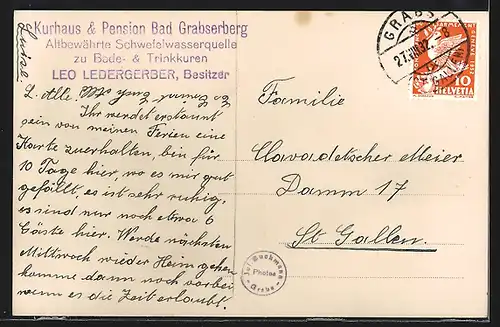 Kurhaus & Pension Bad Grabserberg
Altbewährte Schwefelwasserquelle
zu Bade- & Trinkkuren
LEO LEDERGERBER, Besitzer
L. Alle.
Ihr werdet erstaunt
sein von meinen Ferien eine
Karte zuerhalten, bin für
10 Tage hier, wo es mir gut
gefällt, es ist sehr ruhig,
es sind nur noch etwa 6
Gäste hier. Werde nächsten
Mittwoch wieder Heim gehen
komme dann noch vorbei
wenn es die Zeit erlaubt.
Luise.
GRABS
HELVETIA
10
Familie
Clavadetscher Meier
Damm 17
St Gallen.
Photos